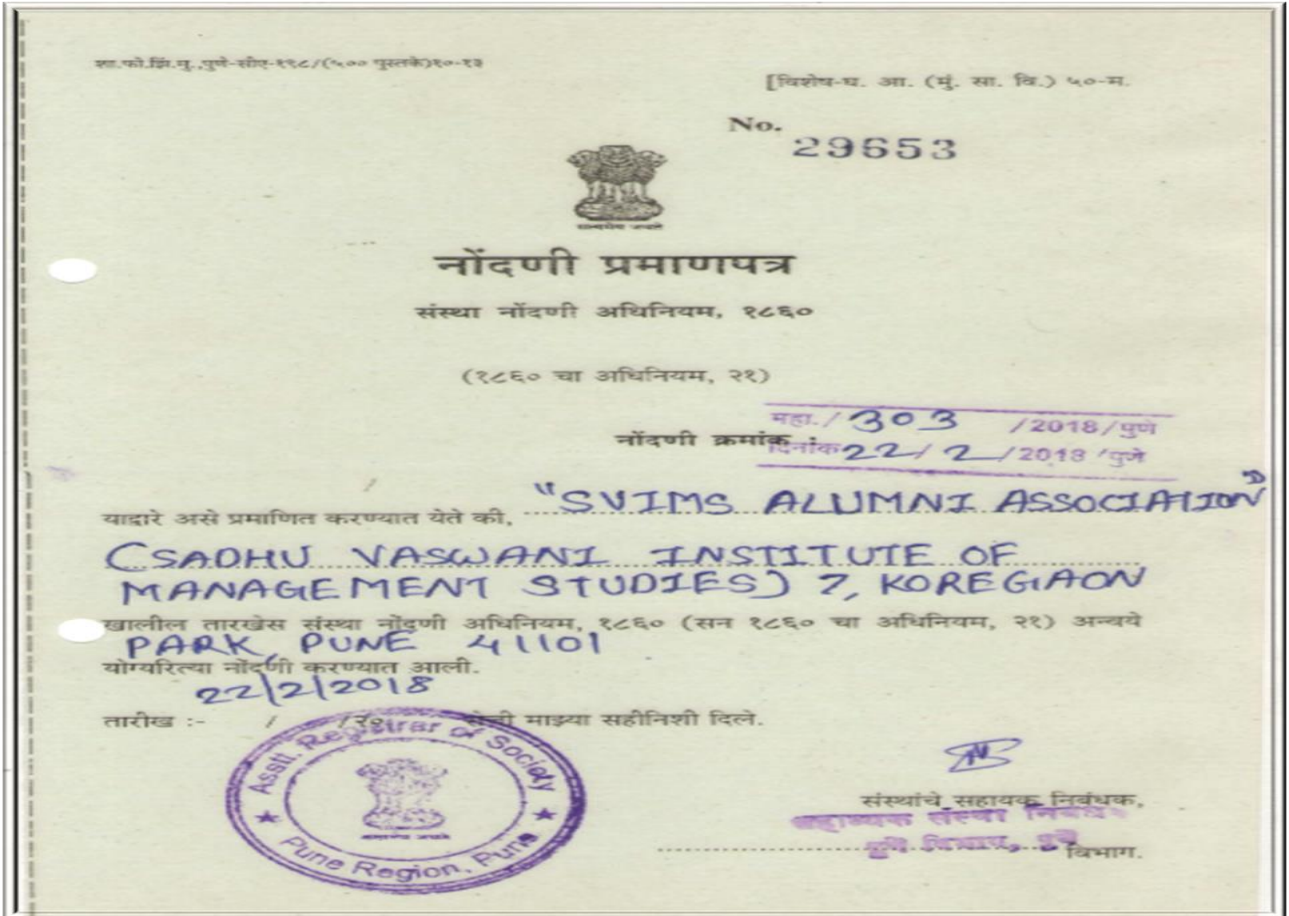 शा.फो.झिं.मु.,पुणे-सीए-१९८/(५०० पुस्तके)१०-१३
[विशेष-घ. आ. (मुं. सा. वि.) ५०-म.
No. 29653
सत्यमेव जयते
नोंदणी प्रमाणपत्र
संस्था नोंदणी अधिनियम, १८६०
(१८६० चा अधिनियम, २१)
महा./ 303 /2018/पुणे
नोंदणी क्रमांक :
दिनांक 22/ 2 /2018/पुणे
याद्वारे असे प्रमाणित करण्यात येते की, "SVIMS ALUMNI ASSOCIATION"
(SADHU VASWANI INSTITUTE OF
MANAGEMENT STUDIES) 7, KOREGAON
खालील तारखेस संस्था नोंदणी अधिनियम, १८६० (सन १८६० चा अधिनियम, २१) अन्वये
PARK, PUNE 41101
योग्यरित्या नोंदणी करण्यात आली.
22/2/2018
तारीख :- / /२० रोजी माझ्या सहीनिशी दिले.
Asstt. Registrar of Society
Pune Region, Pune
संस्थांचे सहायक निबंधक,
पुणे विभाग, पुणे
विभाग.